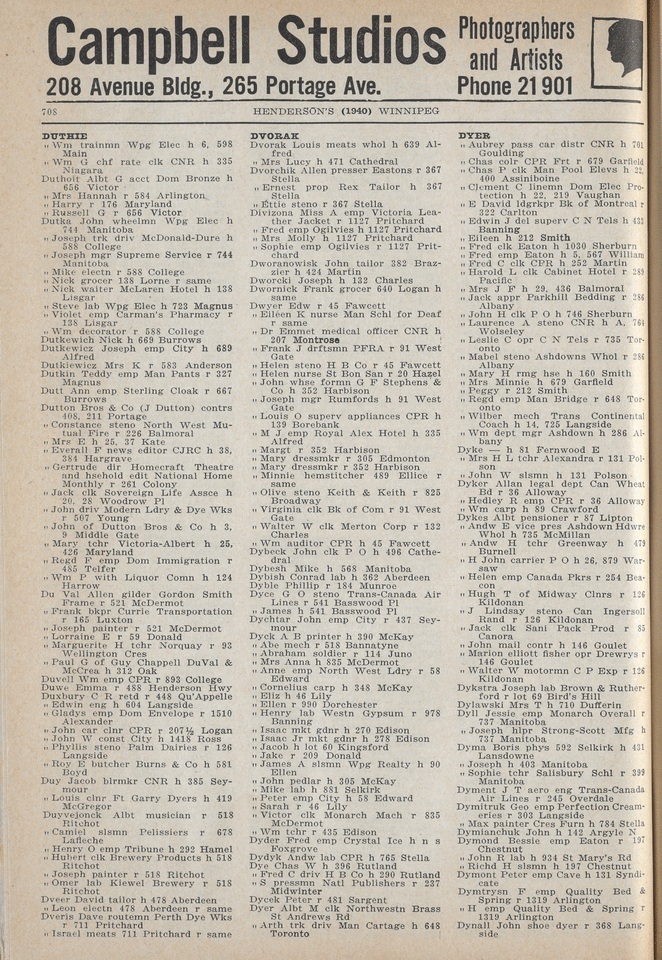 Campbell Studios
Photographers
and Artists
208 Avenue Bldg., 265 Portage Ave.
Phone 21 901
708
HENDERSON'S (1940) WINNIPEG
DUTHIE
„ Wm trainmn Wpg Elec h 6, 598
Main
„ Wm G chf rate clk CNR h 335
Niagara
Duthoit Albt G acct Dom Bronze h
656 Victor
„ Mrs Hannah r 584 Arlington
„ Harry r 176 Maryland
„ Russell G r 656 Victor
Dutka John wheelmn Wpg Elec h
744 Manitoba
„ Joseph trk driv McDonald-Dure h
588 College
„ Joseph mgr Supreme Service r 744
Manitoba
„ Mike electn r 588 College
„ Nick grocer 138 Lorne r same
„ Nick waiter McLaren Hotel h 138
Lisgar
„ Steve lab Wpg Elec h 723 Magnus
„ Violet emp Carman's Pharmacy r
138 Lisgar
„ Wm decorator r 588 College
Dutkewich Nick h 669 Burrows
Dutkewicz Joseph emp City h 689
Alfred
Dutkiewicz Mrs K r 583 Anderson
Dutkin Teddy emp Man Pants r 327
Magnus
Dutt Ann emp Sterling Cloak r 667
Burrows
Dutton Bros & Co (J Dutton) contrs
408, 211 Portage
„ Constance steno North West Mu-
tual Fire r 226 Balmoral
„ Mrs E h 25, 37 Kate
„ Everall F news editor CJRC h 38,
384 Hargrave
„ Gertrude dir Homecraft Theatre
and hsehold edit National Home
Monthly r 261 Colony
„ Jack clk Sovereign Life Assce h
20, 28 Woodrow Pl
„ John driv Modern Ldry & Dye Wks
r 507 Young
„ John of Dutton Bros & Co h 3,
9 Middle Gate
„ Mary tchr Victoria-Albert h 25,
426 Maryland
„ Regd F emp Dom Immigration r
485 Telfer
„ Wm P with Liquor Comn h 124
Harrow
Du Val Allen gilder Gordon Smith
Frame r 521 McDermot
„ Frank bkpr Currie Transportation
r 165 Luxton
„ Joseph painter r 521 McDermot
„ Lorraine E r 59 Donald
„ Marguerite H tchr Norquay r 93
Wellington Cres
„ Paul G of Guy Chappell DuVal &
McCrea h 312 Oak
Duvell Wm emp CPR r 893 College
Duwe Emma r 488 Henderson Hwy
Duxbury C R retd r 448 Qu'Appelle
„ Edwin eng h 604 Langside
„ Gladys emp Dom Envelope r 1510
Alexander
„ John car clnr CPR r 207½ Logan
„ John W const City h 1418 Ross
„ Phyllis steno Palm Dairies r 126
Langside
„ Roy E butcher Burns & Co h 581
Boyd
Duy Jacob blrmkr CNR h 385 Sey-
mour
„ Louis clnr Ft Garry Dyers h 419
McGregor
Duyvejonck Albt musician r 518
Ritchot
„ Camiel slsmn Pelissiers r 678
Lafleche
„ Henry O emp Tribune h 292 Hamel
„ Hubert clk Brewery Products h 518
Ritchot
„ Joseph painter r 518 Ritchot
„ Omer lab Kiewel Brewery r 518
Ritchot
Dveer David tailor h 478 Aberdeen
„ Leon electn 478 Aberdeen r same
Dveris Dave routemn Perth Dye Wks
r 711 Pritchard
„ Israel meats 711 Pritchard r same
DVORAK
Dvorak Louis meats whol h 639 Al-
fred
„ Mrs Lucy h 471 Cathedral
Dvorchik Allen presser Eastons r 367
Stella
„ Ernest prop Rex Tailor h 367
Stella
„ Ettie steno r 367 Stella
Divizona Miss A emp Victoria Lea-
ther Jacket r 1127 Pritchard
„ Fred emp Ogilvies h 1127 Pritchard
„ Mrs Molly h 1127 Pritchard
„ Sophie emp Ogilvies r 1127 Prit-
chard
Dworanowisk John tailor 382 Bra-
zier h 424 Martin
Dworcki Joseph h 132 Charles
Dwornick Frank grocer 640 Logan h
same
Dwyer Edw r 45 Fawcett
„ Eileen K nurse Man Schl for Deaf
r same
„ Dr Emmet medical officer CNR h
207 Montrose
„ Frank J drftsmn PFRA r 91 West
Gate
„ Helen steno H B Co r 45 Fawcett
„ Helen nurse St Bon San r 20 Hazel
„ John whse formn G F Stephens &
Co h 352 Harbison
„ Joseph mgr Rumfords h 91 West
Gate
„ Louis O superv appliances CPR h
139 Borebank
„ M J emp Royal Alex Hotel h 335
Alfred
„ Margt r 352 Harbison
„ Mary dressmkr r 305 Edmonton
„ Mary dressmkr r 352 Harbison
„ Minnie hemstitcher 489 Ellice r
same
„ Olive steno Keith & Keith r 825
Broadway
„ Virginia clk Bk of Com r 91 West
Gate
„ Walter W clk Merton Corp r 132
Charles
„ Wm auditor CPR h 45 Fawcett
Dybeck John clk P O h 496 Cathe-
dral
Dybesh Mike h 568 Manitoba
Dybish Conrad lab h 362 Aberdeen
Dyble Phillip r 184 Munroe
Dyce G O steno Trans-Canada Air
Lines r 541 Basswood Pl
„ James h 541 Basswood Pl
Dychtar John emp City r 437 Sey-
mour
Dyck A B printer h 390 McKay
„ Abe mech r 518 Bannatyne
„ Abraham soldier r 114 Juno
„ Mrs Anna h 835 McDermot
„ Anne emp North West Ldry r 58
Edward
„ Cornelius carp h 348 McKay
„ Eliz h 46 Lily
„ Ellen r 990 Dorchester
„ Henry lab Westn Gypsum r 978
Banning
„ Isaac mkt gdnr h 270 Edison
„ Isaac Jr mkt gdnr h 278 Edison
„ Jacob h lot 60 Kingsford
„ Jake r 209 Donald
„ James A slsmn Wpg Realty h 90
Ellen
„ John pedlar h 305 McKay
„ Mike lab h 881 Selkirk
„ Peter emp City h 58 Edward
„ Sarah r 46 Lily
„ Victor clk Monarch Mach r 835
McDermot
„ Wm tchr r 435 Edison
Dyder Fred emp Crystal Ice h n s
Foxgrove
Dydyk Andw lab CPR h 765 Stella
Dye Chas W h 396 Rutland
„ Fred C driv H B Co h 290 Rutland
„ S pressmn Natl Publishers r 237
Midwinter
Dycek Peter r 481 Sargent
Dyer Albt M clk Northwestn Brass
St Andrews Rd
„ Arth trk driv Man Cartage h 648
Toronto
DYER
„ Aubrey pass car distr CNR h 701
Goulding
„ Chas colr CPR Frt r 679 Garfield
„ Chas P clk Man Pool Elevs h 22,
400 Assiniboine
„ Clement C linemn Dom Elec Pro-
tection h 22, 219 Vaughan
„ E David ldgrkpr Bk of Montreal r
322 Carlton
„ Edwin J del superv C N Tels h 433
Banning
„ Eileen h 212 Smith
„ Fred clk Eaton h 1030 Sherburn
„ Fred emp Eaton h 5, 567 William
„ Fred C clk CPR h 252 Martin
„ Harold L clk Cabinet Hotel r 289
Pacific
„ Mrs J F h 29, 436 Balmoral
„ Jack appr Parkhill Bedding r 286
Albany
„ John H clk P O h 746 Sherburn
„ Laurence A steno CNR h A, 761
Wolseley
„ Leslie C opr C N Tels r 735 Tor-
onto
„ Mabel steno Ashdowns Whol r 286
Albany
„ Mary H rmg hse h 160 Smith
„ Mrs Minnie h 679 Garfield
„ Peggy r 212 Smith
„ Regd emp Man Bridge r 648 Tor-
onto
„ Wilber mech Trans Continental
Coach h 14, 725 Langside
„ Wm dept mgr Ashdown h 286 Al-
bany
Dyke — h 81 Fernwood E
„ Mrs H L tchr Alexandra r 131 Pol-
son
„ John W slsmn h 131 Polson
Dyker Allan legal dept Can Wheat
Bd r 36 Alloway
„ Hedley R emp CPR r 36 Alloway
„ Wm carp h 89 Crawford
Dykes Albt pensioner r 87 Lipton
„ Andw E vice pres Ashdown Hdwre
Whol h 735 McMillan
„ Andw H tchr Greenway h 479
Burnell
„ H John carrier P O h 26, 879 War-
saw
„ Helen emp Canada Pkrs r 254 Bea-
con
„ Hugh T of Midway Clnrs r 126
Kildonan
„ J Lindsay steno Can Ingersoll
Rand r 126 Kildonan
„ Jack clk Sani Pack Prod r 85
Canora
„ John mail contr h 146 Goulet
„ Marion elliott fisher opr Drewrys r
146 Goulet
„ Walter W motormn C P Exp r 126
Kildonan
Dykstra Joseph lab Brown & Ruther-
ford r lot 69 Bird's Hill
Dylawski Mrs T h 710 Dufferin
Dyll Jessie emp Monarch Overall r
737 Manitoba
„ Joseph hlpr Strong-Scott Mfg h
737 Manitoba
Dyma Boris phys 592 Selkirk h 431
Lansdowne
„ Joseph h 403 Manitoba
„ Sophie tchr Salisbury Schl r 399
Manitoba
Dyment J T aero eng Trans-Canada
Air Lines r 245 Overdale
Dymitruk Geo emp Perfection Cream-
eries r 303 Langside
„ Max painter Cres Furn h 784 Stella
Dymianchuk John h 142 Argyle N
Dymond Bessie emp Eaton r 197
Chestnut
„ John R lab h 934 St Mary's Rd
„ Richd H slsmn h 197 Chestnut
Dymont Peter emp Cave h 131 Syndi-
cate
Dymtrysn F emp Quality Bed &
Spring r 1319 Arlington
„ H emp Quality Bed & Spring r
1319 Arlington
Dynall John shoe dyer r 368 Lang-
side